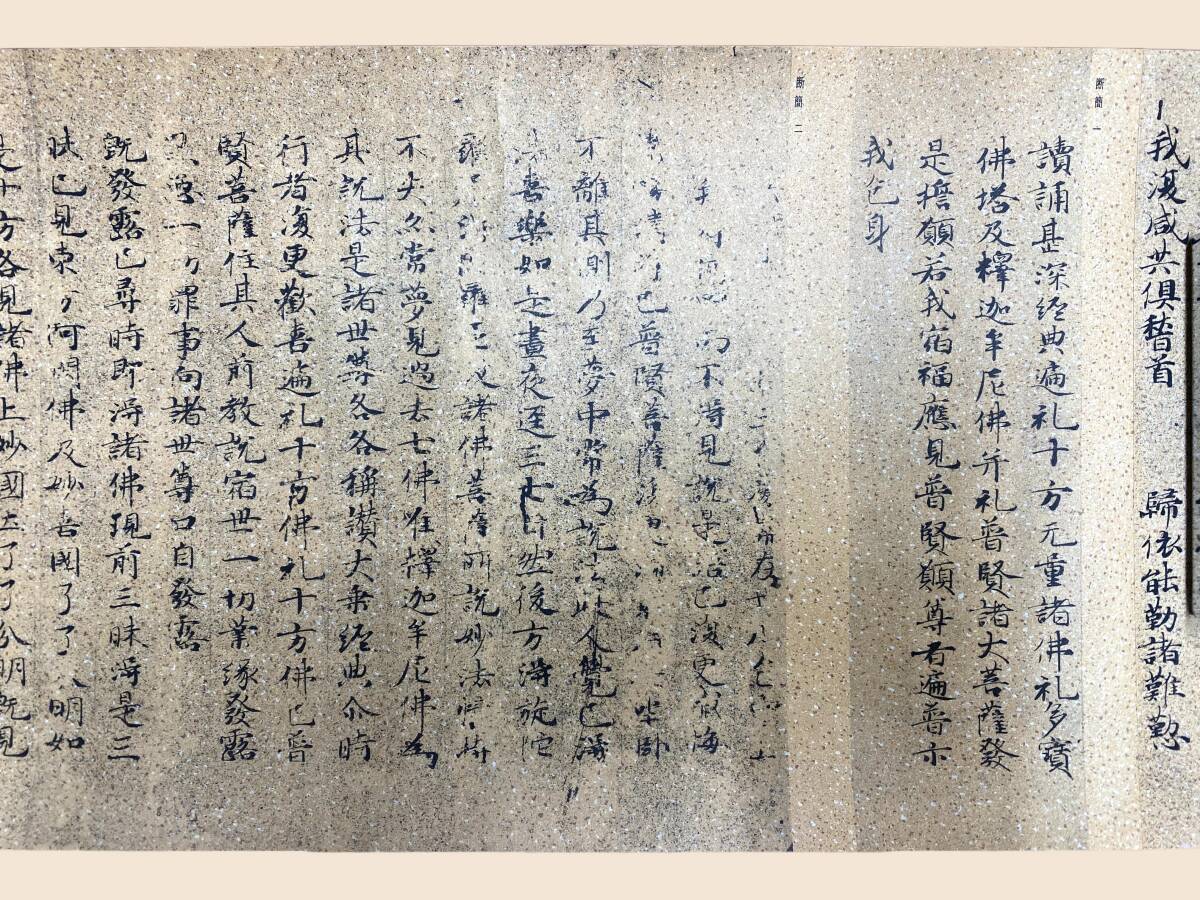 我復咸共俱稽首 歸依能勤諸難愍
断簡 一
讀誦甚深經典遍礼十方无量諸佛礼多寶
佛塔及釋迦牟尼佛并礼普賢諸大菩薩發
是擔願若我宿福應見普賢願尊者遍普示
我色身
断簡 二
而不得見說是語已復更懺悔
已普賢菩薩 坐卧
不離其側乃至夢中常為說法此人覺已得
法喜樂如是晝夜逕三七日然後方得旋陀
羅 諸佛菩薩所說妙法憶持
不失亦常夢見過去七佛唯釋迦牟尼佛為
其說法是諸世尊各各稱讚大乘經典尒時
行者復更歡喜遍礼十方佛礼十方佛已普
賢菩薩住其人前教說宿世一切業緣發露
黑惡一切罪事向諸世尊口自發露
既發露已尋時即得諸佛現前三昧得是三
昧已見東方阿閦佛及妙喜國了了分明如
是十方各見諸佛上妙國土了了分明既見